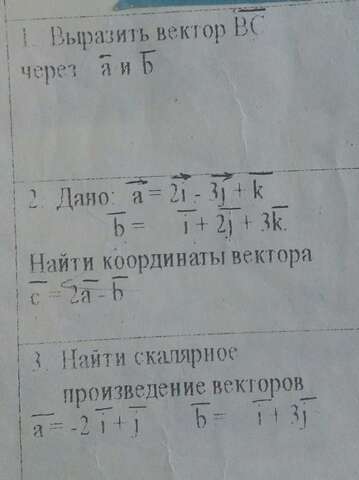 1. Выразить вектор B̅C̅
через a̅ и b̅
2. Дано: a̅ = 2i̅ - 3j̅ + k̅
b̅ = i̅ + 2j̅ + 3k̅.
Найти координаты вектора
c̅ = 2a̅ - b̅
3. Найти скалярное
произведение векторов
a̅ = -2 i̅ + j̅ b̅ = i̅ + 3j̅